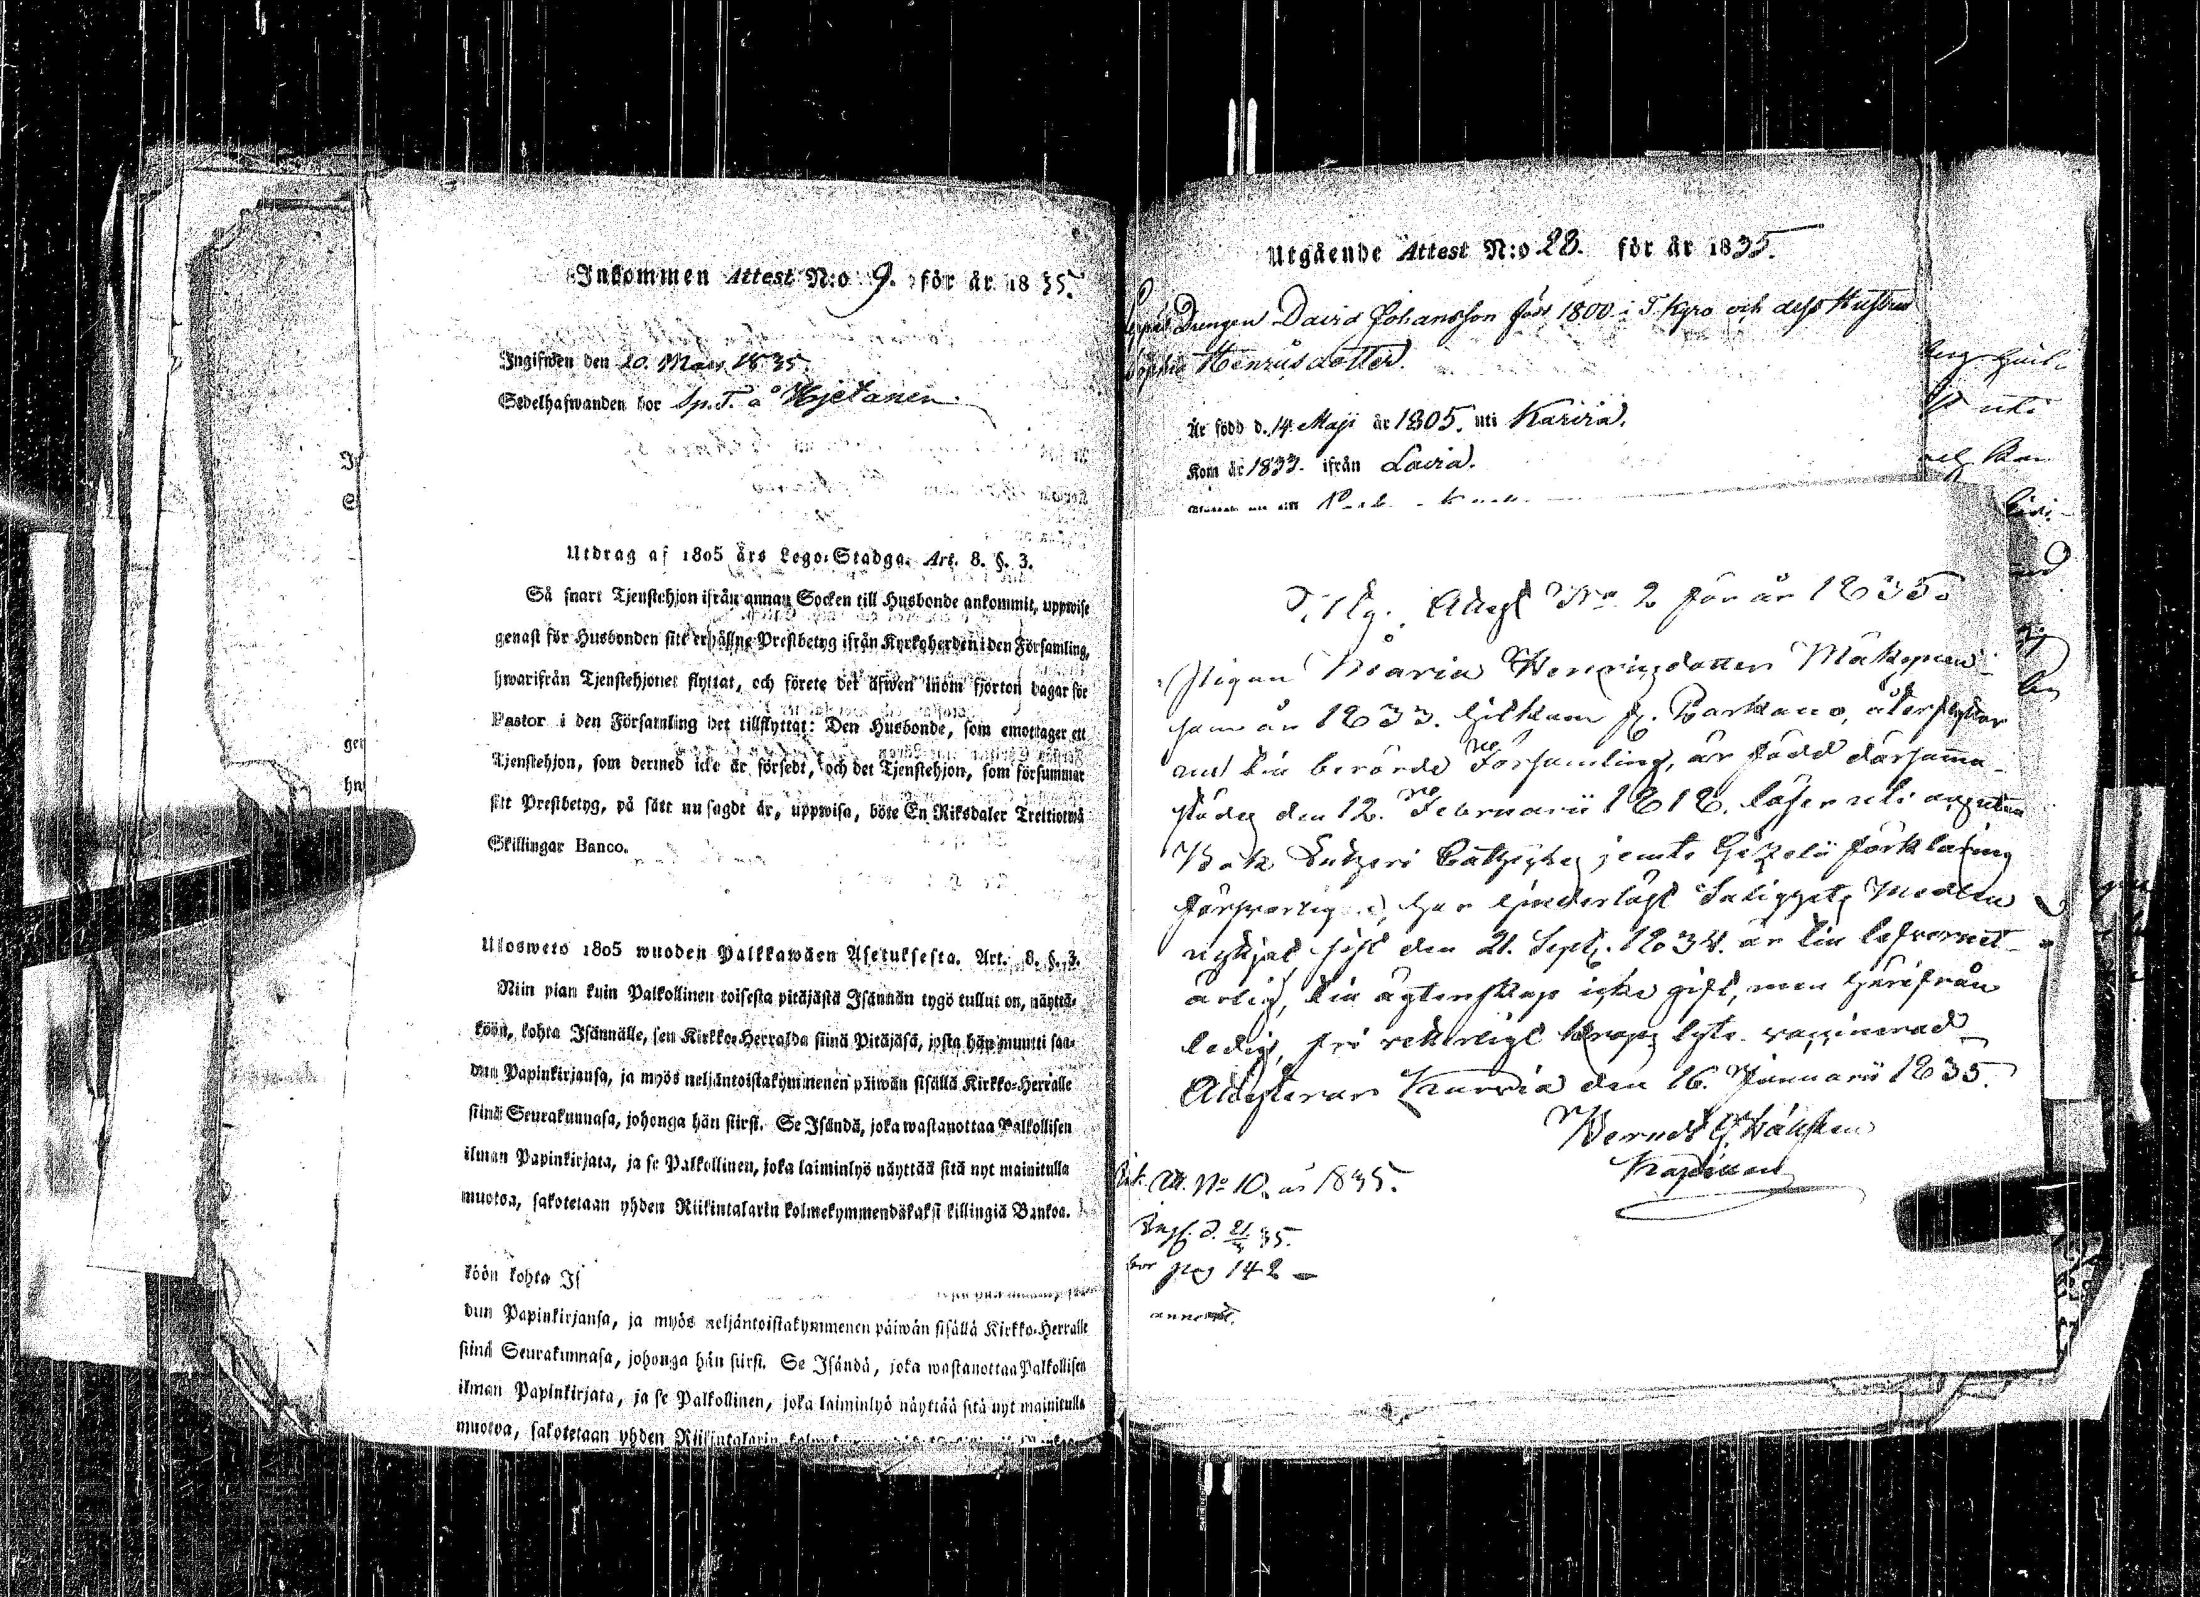 Inkommen Attest N:o 9. för år 1835.
Ingifwen den 20. Mars 1835.
Sedelhafwanden bor Sp.T. å Hyetanen.
Utdrag af 1805 års Lego-Stadga. Art. 8. §. 3.
Så snart Tjenstehjon ifrån annan Socken till Husbonde ankommit, uppwise
genast för Husbonden sitt erhållne Prestbetyg ifrån Kyrkoherden i den Församling,
hwarifrån Tjenstehjonet flyttat, och förete det äfwen inom fjorton dagar för
Pastor i den Församling det tillflyttat: Den Husbonde, som emottager ett
Tjenstehjon, som dermed icke är försedt, och det Tjenstehjon, som försummar
sitt Prestbetyg, på sätt nu sagdt är, uppwisa, böte En Riksdaler Trettiotwå
Skillingar Banco.
Ulosweto 1805 wuoden Palkkawäen Asetuksesta. Art. 8. §. 3.
Niin pian kuin Palkollinen toisesta pitäjästä Isännän tygö tullut on, näyttä-
köön, kohta Isännälle, sen Kirkko-Herralda siinä Pitäjäsä, josta hän muutti saa-
dun Papinkirjansa, ja myös neljäntoistakymmenen päiwän sisällä Kirkko-Herralle
siinä Seurakunnasa, johonga hän siirsi. Se Isändä, joka wastanottaa Palkollisen
ilman Papinkirjata, ja se Palkollinen, joka laiminlyö näyttää sitä nyt mainitulla
muotoa, sakotetaan yhden Riikintalarin kolmekymmendäkaksi killingiä Bankoa.
köön kohta Is
dun Papinkirjansa, ja myös neljäntoistakymmenen päiwän sisällä Kirkko-Herralle
siinä Seurakunnasa, johonga hän siirsi. Se Isändä, joka wastanottaa Palkollisen
ilman Papinkirjata, ja se Palkollinen, joka laiminlyö näyttää sitä nyt mainitulla
muotoa, sakotetaan yhden Riikintalarin
Utgående Attest N:o 28. för år 1835.
Drengen David Johansson född 1800 i T. Kyro och dess Hustru
Sophia Henricsdotter.
Är född d. 14 Maji år 1805. uti Karvia.
Kom år 1833. ifrån Lavia.
Attest No 2 för år 1835.
Pigan Maria Henricsdotter Mäkepnen
som år 1833. hitkom fr. Parkano, återflyttar
nu till berörde Församling, är född därsamma-
städes den 12. Februarii 1818. läser uti
Bok Lutheri Catheches jemte Gezelii förklaring
försvarlig, har Salighets Medlen
nyttjat sist den 21. Sept. 1834. är till lefvernet
ärlig, till ägtenskap icke gift, men härifrån
ledig, fri vaccinerad
Attesterar Karvia den 16. Januarii 1835.
Kapellan
Att. No 10. år 1835.
Ingf. d. 21/3 35.
bor pag 142